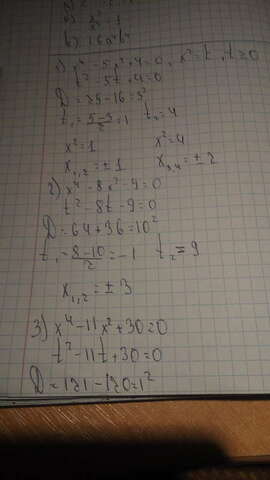 б) 16a⁴b⁴
1) x⁴-5x²+4=0, x²=t, t≥0
t²-5t+4=0
D=25-16=3²
t₁=(5-3)/2=1 t₂=4
x²=1 x²=4
x₁,₂=±1 x₃,₄=±2
2) x⁴-8x²-9=0
t²-8t-9=0
D=64+36=10²
t₁=(8-10)/2=-1 t₂=9
x₁,₂=±3
3) x⁴-11x²+30=0
t²-11t+30=0
D=121-120=1²